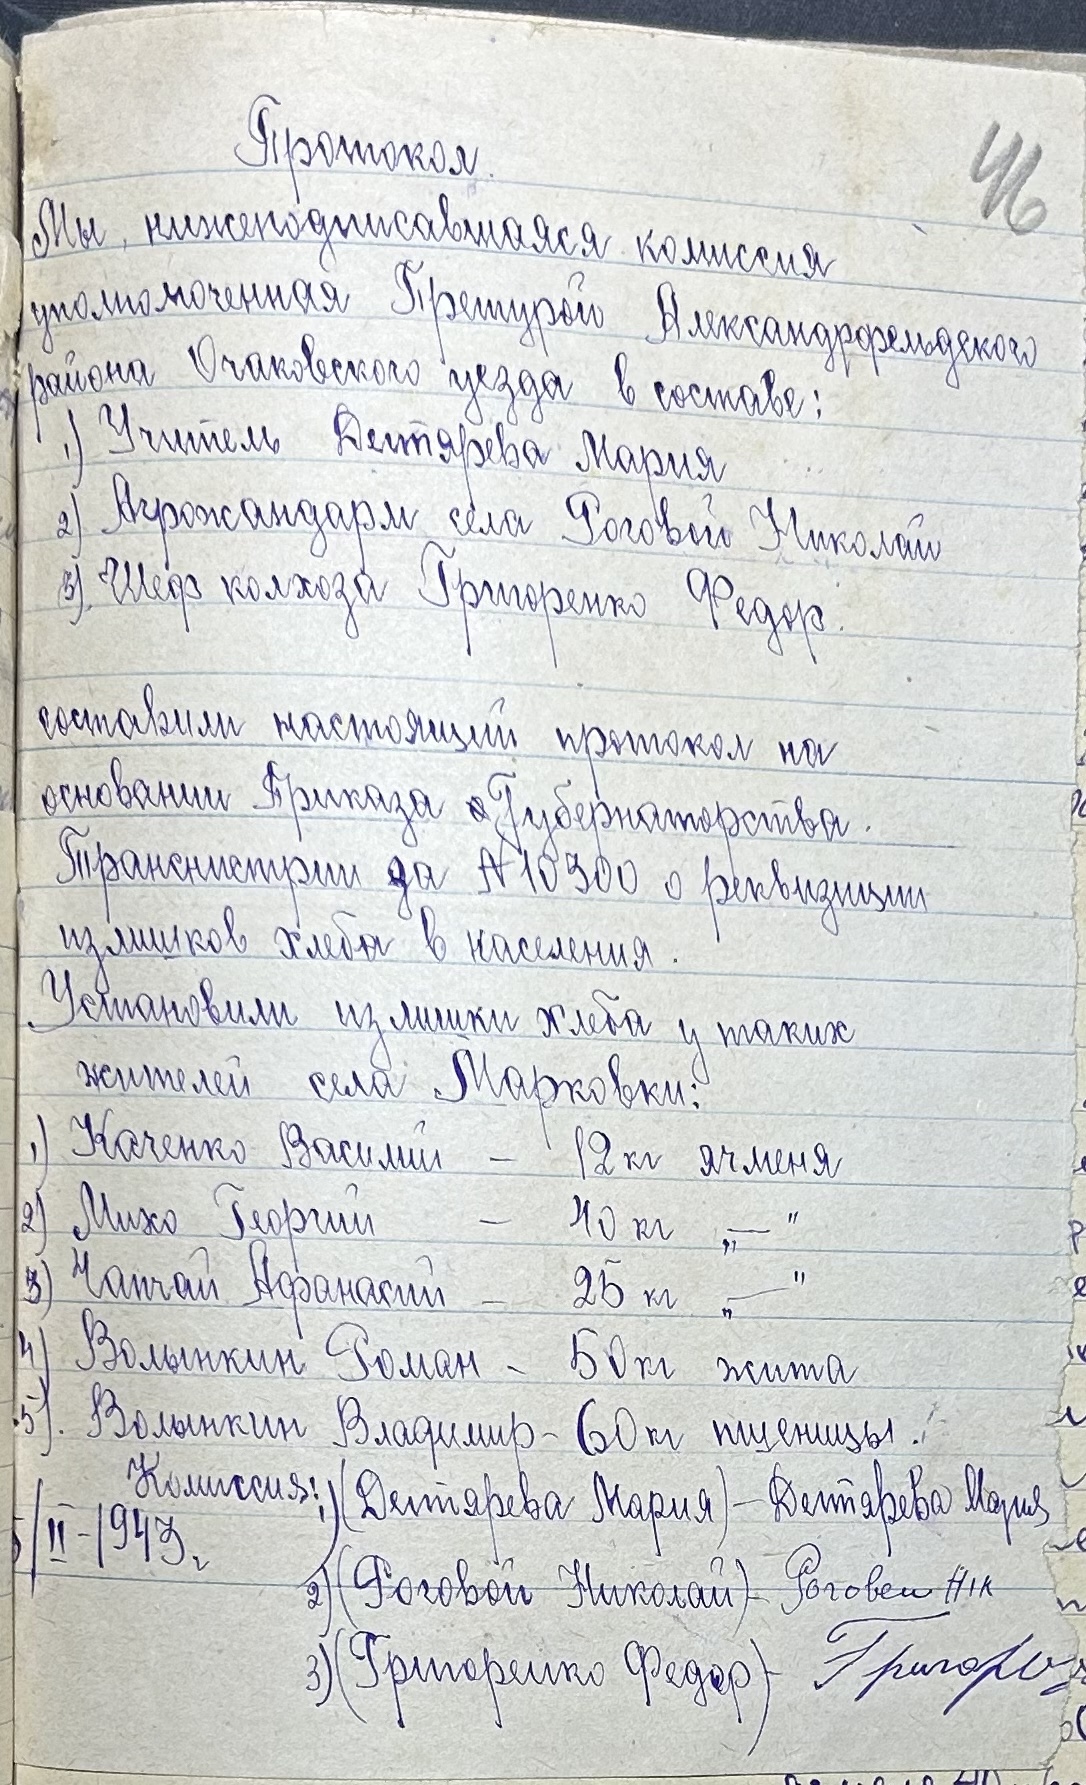 46
Протокол.
Мы, нижеподписавшаяся комиссия
уполномоченная Претурой Александрфельдского
района Очаковского уезда в составе:
1) Учитель Дегтярева Мария
2) Агрожандарм села Роговой Николай
3) Шеф колхоза Григоренко Федор.
составили настоящий протокол на
основании Приказа Губернаторства
Транснистрии за N 10300 о реквизиции
излишков хлеба в населения.
Установили излишки хлеба у таких
жителей села Марковки:
1) Каченко Василий – 12 кг ячменя
2) Михо Георгий – 40 кг „—"
3) Чапчай Афанасий – 25 кг „—"
4) Волынкин Роман – 50 кг жита
5). Волынкин Владимир – 60 кг пшеницы.
Комиссия: 1) (Дегтярева Мария) – Дегтярева Мария
5/II – 1943 г.
2) (Роговой Николай) – Роговой Нік
3) (Григоренко Федор) –